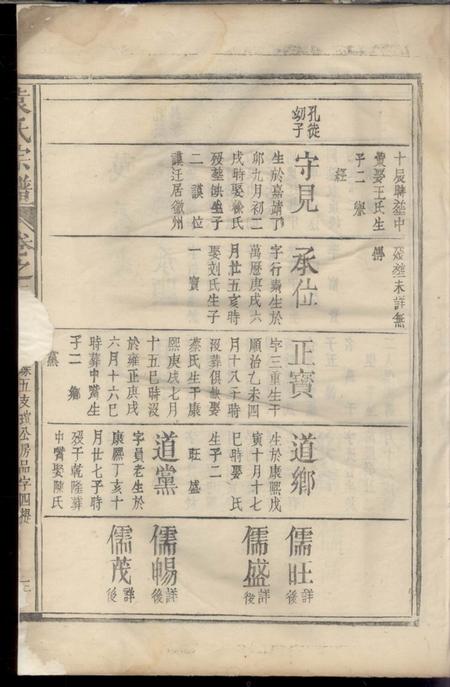 十辰時塟中
費娶王氏生
子二 學
經
孔從
幼子
守見
生於嘉靖丁
卯九月初二
戌時娶徐氏
歿塟缺生子
二 謨 位
謨迁居徽州
傳
歿塟未詳無
承位
字行素生於
萬曆庚戌六
月廿五亥時
娶刘氏生子
一 寶
正寶
字三重生于
順治乙未四
月十八子時
沒葬俱缺娶
蔡氏生于康
熙庚戌七月
十五巳時沒
於雍正庚戌
六月十六巳
時葬中嘴生
子二 鄉
黨
道鄉
生於康熙戊
寅十月十七
巳時娶 氏
生子二
旺 盛
道黨
字員老生於
康熙丁亥十
月廿七子時
歿于乾隆葬
中嘴娶陳氏
儒旺詳後
儒盛詳後
儒暢詳後
儒茂詳後
袁氏宗譜
卷之
五支瓊公房品字四櫻